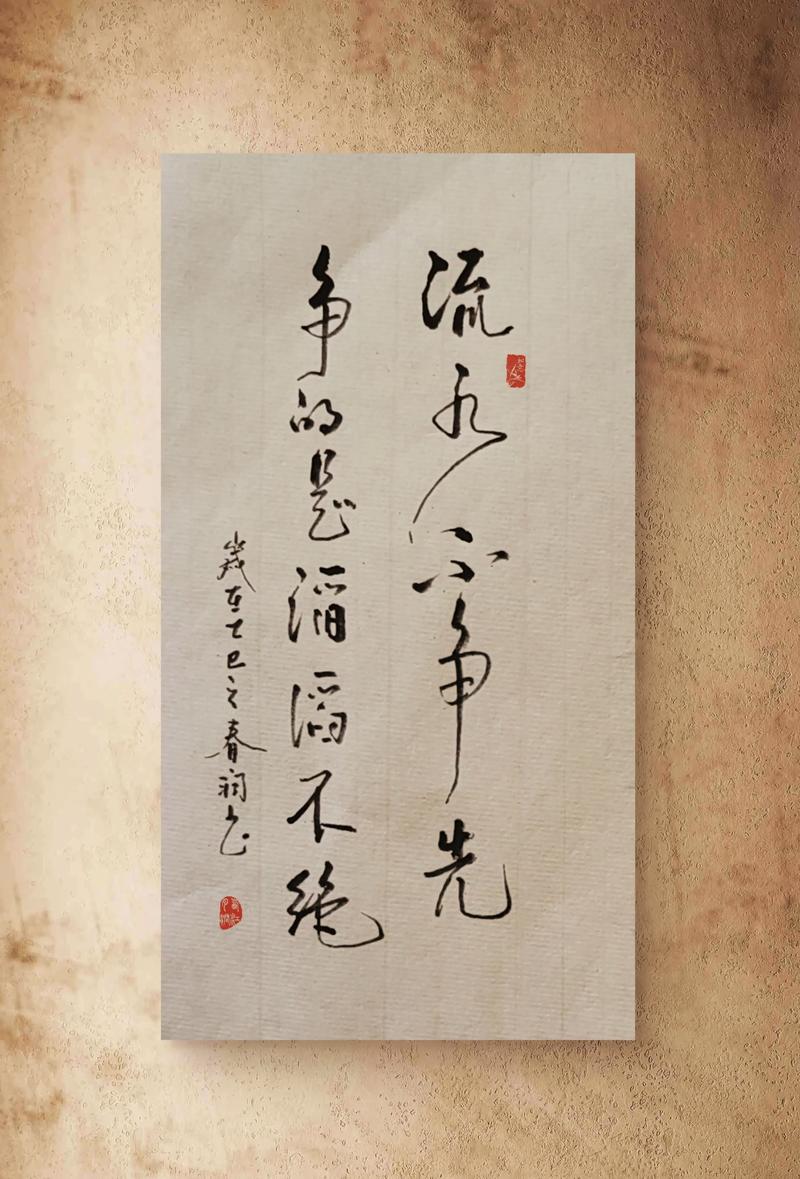 流水不争先
争的是滔滔不绝
岁在乙巳之春